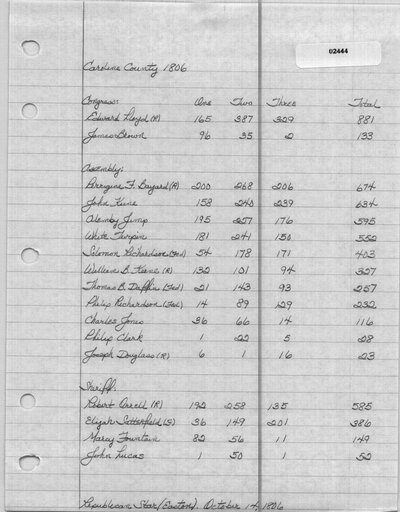 02444
Caroline County 1806
Congress: One Two Three Total
Edward Lloyd (R) 165 387 329 881
James Brown 96 35 2 133
Assembly:
F. Bayard (R) 200 268 206 674
John Kane 158 240 239 634
Alemby Jump 195 257 176 595
White Turpin 181 241 150 552
Solomon Richardson (Fed) 54 178 171 403
William B. Keene (R) 132 101 94 327
Thomas B. Daffin (Fed) 21 143 93 257
Philip Richardson (Fed) 14 89 129 232
Charles Jones 36 66 14 116
Philip Clark 1 22 5 28
Joseph Douglass (R) 6 1 16 23
Sheriff:
Robert Orrell (R) 192 258 135 585
Elijah Satterfield (F) 36 149 201 386
Marcy Fountain 82 56 11 149
John Lucas 1 50 1 52
Republican Star (Easton). October 14, 1806